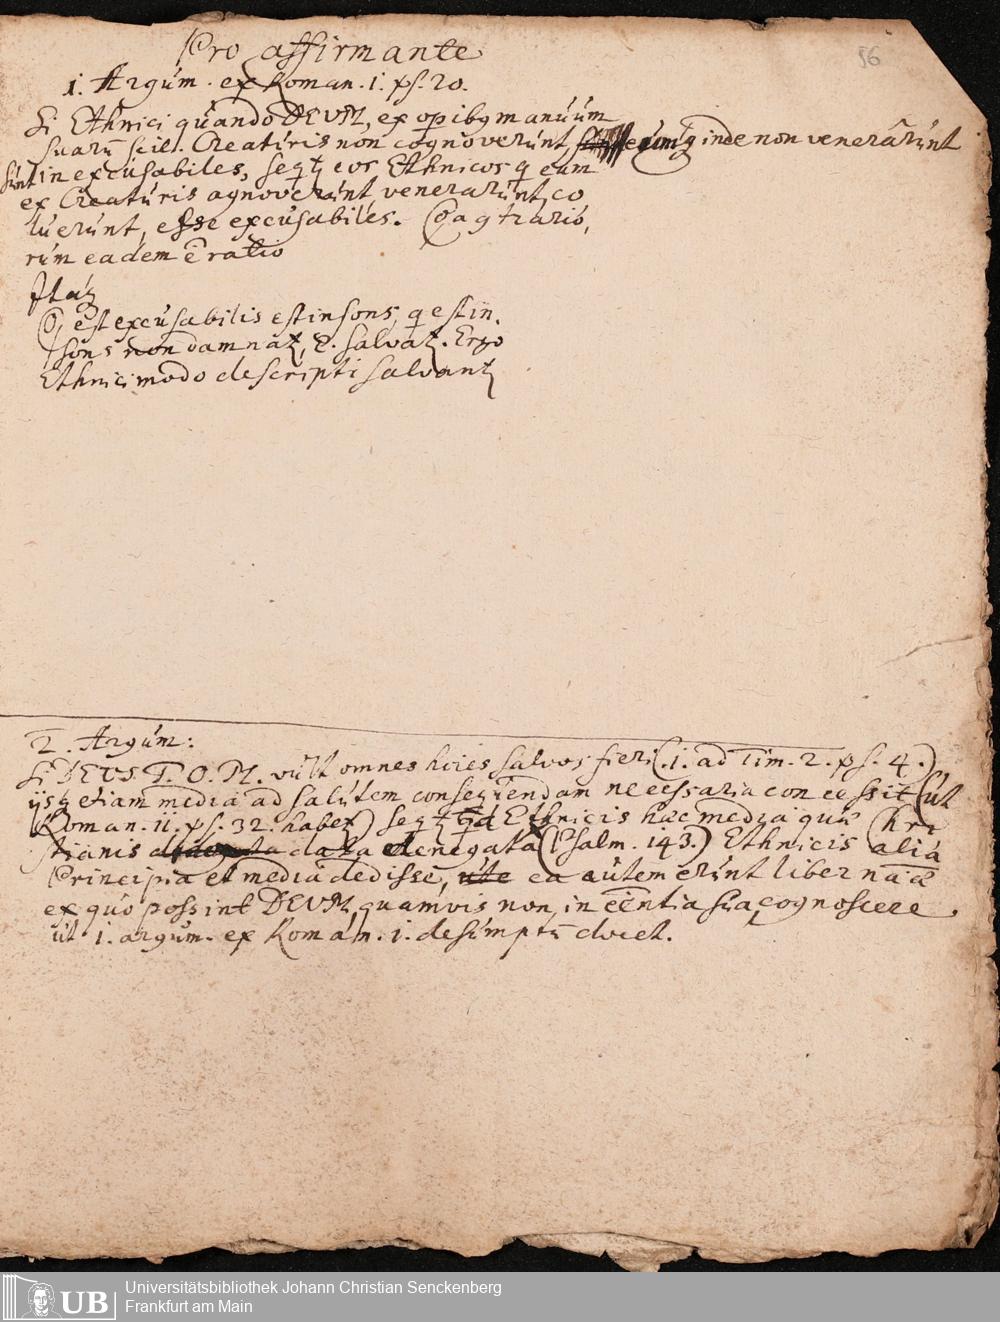 56
Pro affirmante
1. Argúm. ex Roman. 1. ps. 20.
Si Ethnici qúando DEUM, ex opibq manúúm
súarū scil. Creatúris non cognoverúnt eúmq inde non venerārúnt
súnt inexcúsabiles, seqt eos Ethnicos q eúm
ex Creatúris agnoverúnt venerarúnt, co
lúerúnt, esse excúsabiles. Qa qtrarió,
rúm eadem ē ratio
Itaq
Qj est excúsabilis est insons, q est in,
sons non damnat, E. salvat. Ergo
Ethnici modo descripti salvant
2. Argúm:
Si DEUS T. O. M. vúlt omnes hoies salvos fieri (1. ad Tim. 2. ps. 4.)
ijsq etiam media ad salútem conseqúendam necessaria concessit (út
Roman. 11. ps. 32. habet) seqt qd Ethnicis haec media qúā Chri
stianis data denegata (Psalm. 143.) Ethnicis alia
Principia et media dedisse, ea aútem erúnt liber naāe
ex qúo possint DEUM, quamvis non, in eēntia súa, cognoscere,
út 1. argúm. ex Roman. 1. desúmptū docet.
UB
Universitätsbibliothek Johann Christian Senckenberg
Frankfurt am Main